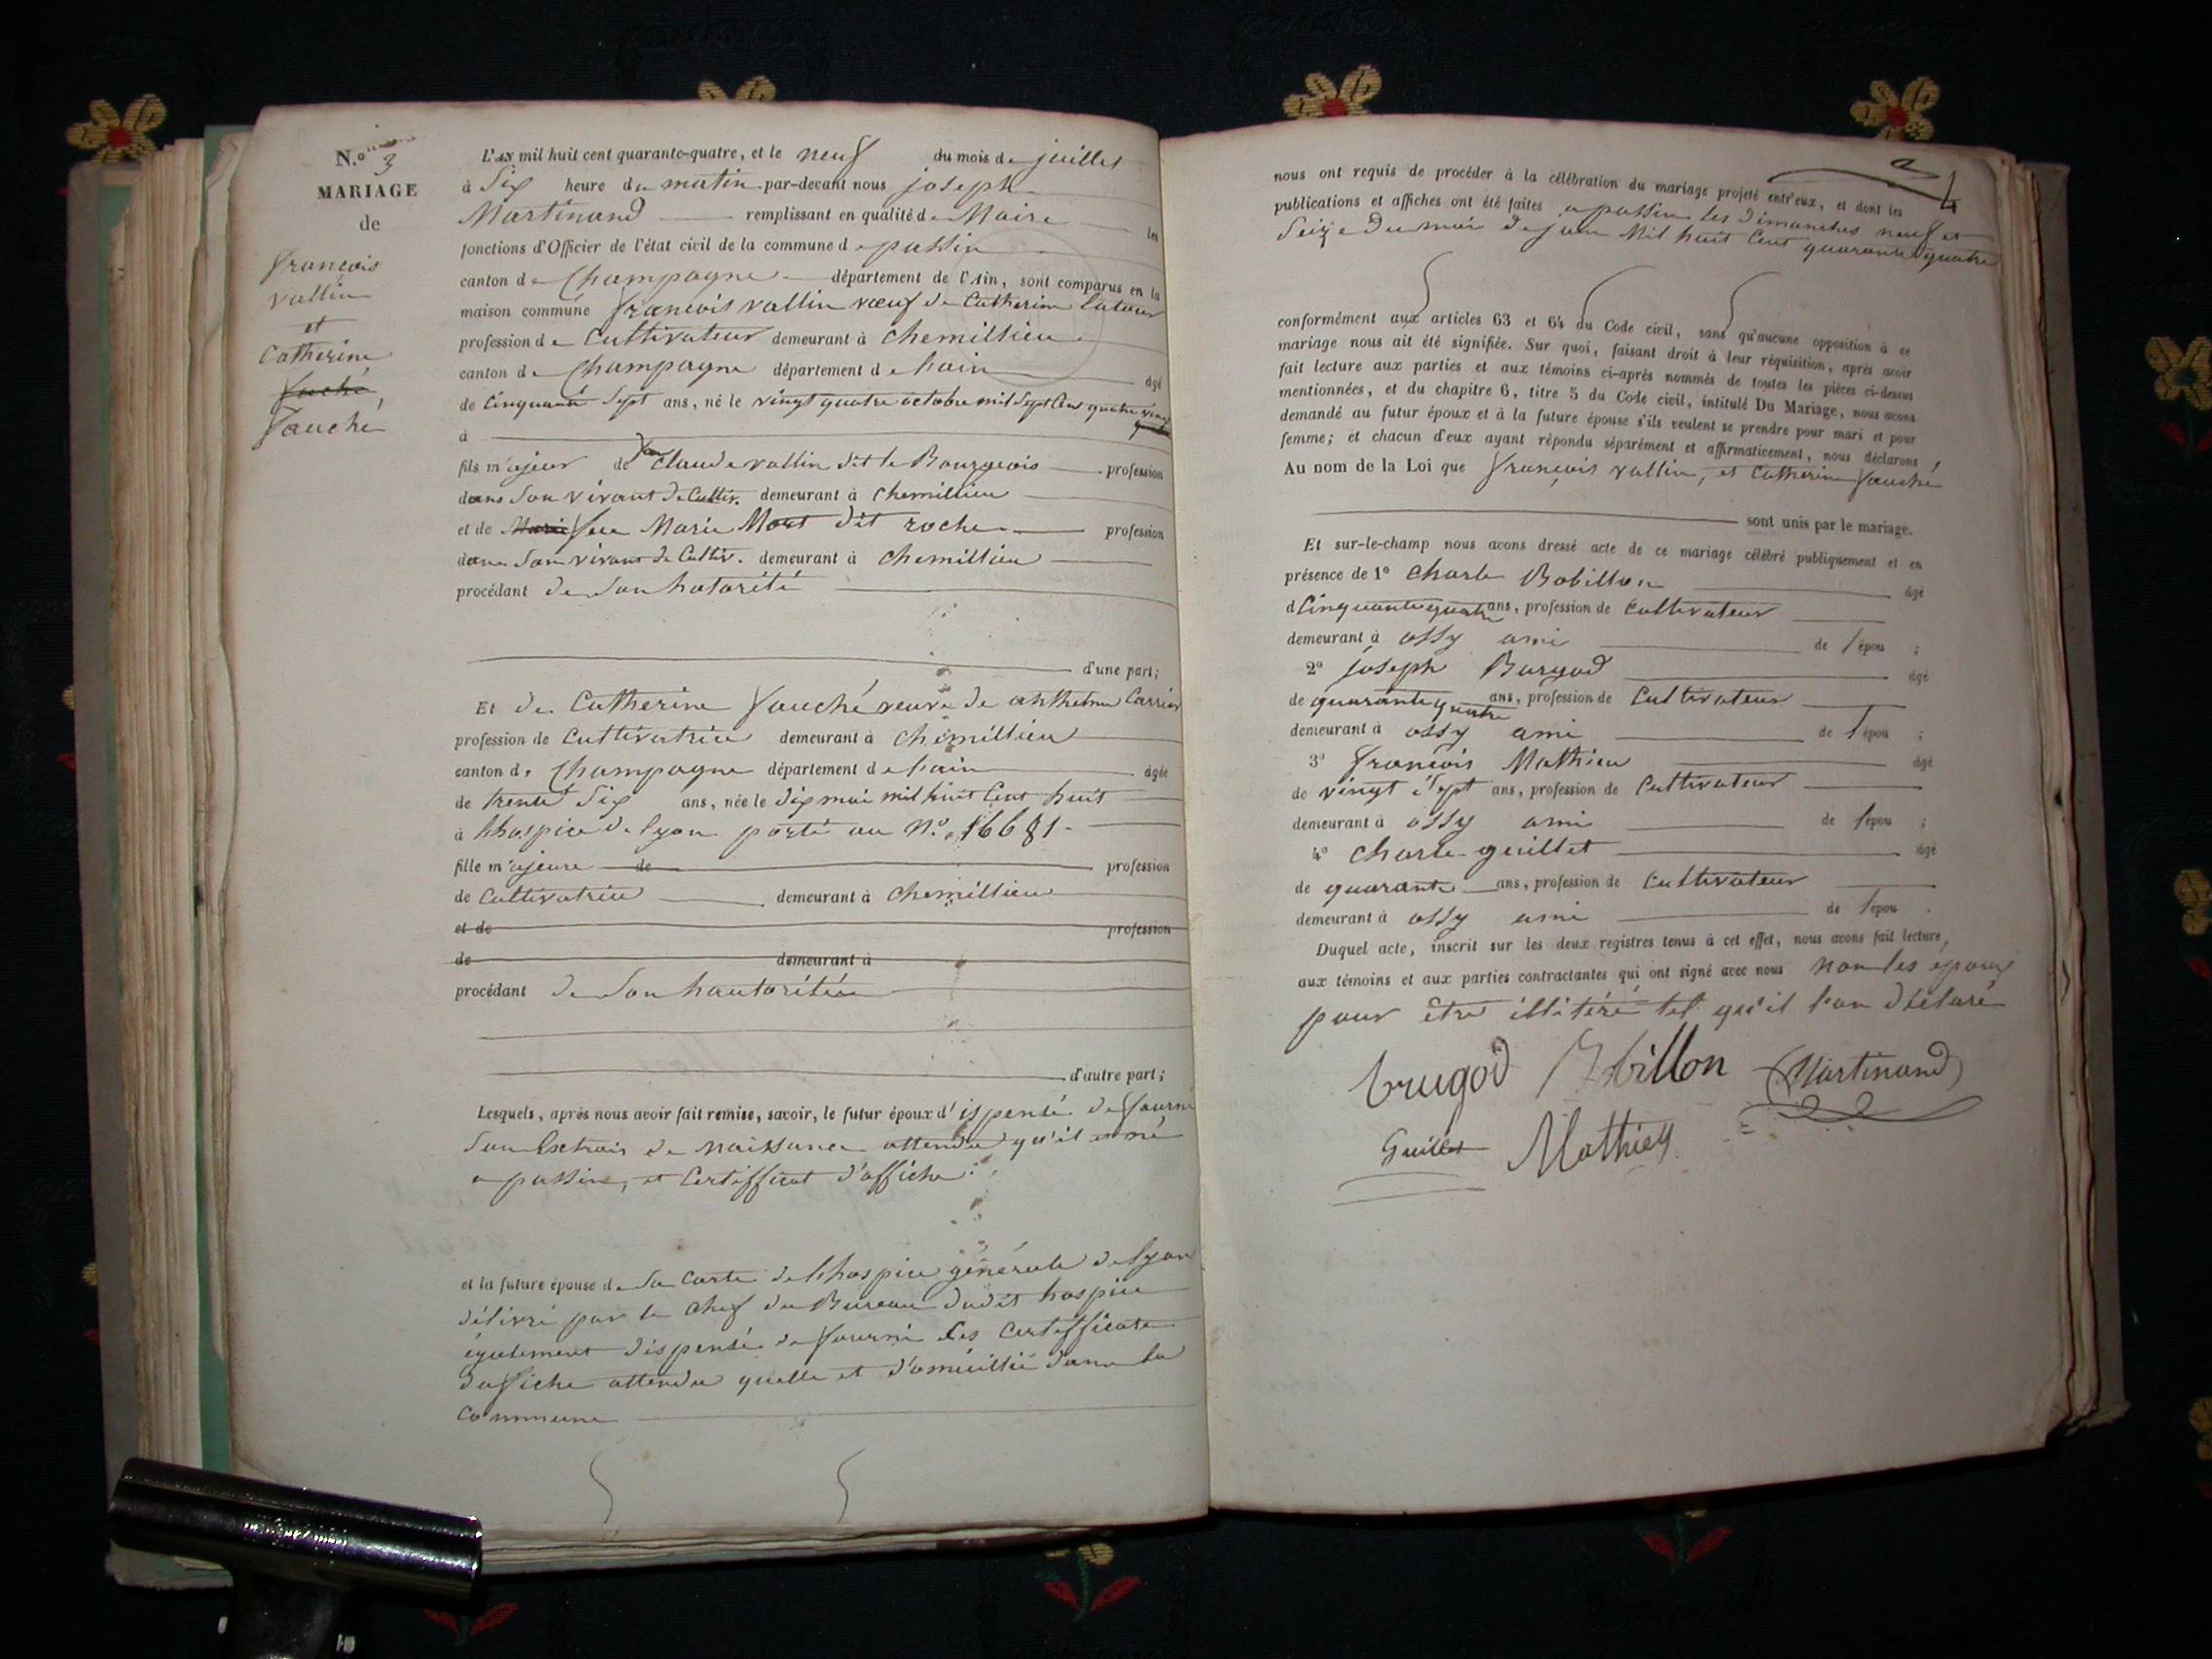 N.º 3
MARIAGE
de
françois
vallin
et
Catherine
fauché,
fauché
L'AN mil huit cent quarante-quatre, et le neuf du mois de juillet
à Six heure du matin par-devant nous joseph
Martinand remplissant en qualité de Maire les
fonctions d'Officier de l'état civil de la commune d e passin
canton de Champagne département de l'Ain, sont comparus en la
maison commune françois vallin vœuf de Catherine latour
profession de Cultivateur demeurant à chemillieu
canton de Champagne département de lain âgé
de Cinquante Sept ans, né le vingt quatre octobre mil Sept Cent quatre vingt
à
fils majeur de feu Claude vallin dit le Bourgeois profession
dans Son vivant de Cultiv. demeurant à chemillieu
et de Marie feu Marie Mort dit roche profession
dans Son vivant de Cultiv. demeurant à chemillieu
procédant de Son hotorité
d'une part;
Et de Catherine fauché veuve de anthelme Carrier
profession de Cultivatrice demeurant à chémillieu
canton de Champagne département de lain âgée
de trente Six ans, née le dix mai mil huit Cent huit
à lhospice de lyon porté au Nº. 16681
fille majeure de profession
de Cultivatrice demeurant à chemillieu
et de profession
de demeurant à
procédant de Son hautoritée
d'autre part;
Lesquels, après nous avoir fait remise, savoir, le futur époux d'ispensé de fourni
Son Extrais de Naissance attendu qu'il et né
a passin, et Certifficat d'affiche
et la future épouse de Sa Carte de lhospice générale de lyon
délivré par le Chef du Bureau dudit hospice
également dispensé de fourni les Certifficate
d'affiche attendu quelle et d'omicillié dans la
Commune
nous ont requis de procéder à la célébration du mariage projeté entr'eux, et dont les
publications et affiches ont été faites a passin les dimanches neuf et
Seize du mois de juin Mil huit Cent quarante quatre
conformément aux articles 63 et 64 du Code civil, sans qu'aucune opposition à ce
mariage nous ait été signifiée. Sur quoi, faisant droit à leur réquisition, après avoir
fait lecture aux parties et aux témoins ci-après nommés de toutes les pièces ci-dessus
mentionnées, et du chapitre 6, titre 5 du Code civil, intitulé Du Mariage, nous avons
demandé au futur époux et à la future épouse s'ils veulent se prendre pour mari et pour
femme; et chacun d'eux ayant répondu séparément et affirmativement, nous déclarons,
Au nom de la Loi que françois vallin, et Catherine fauché
sont unis par le mariage.
Et sur-le-champ nous avons dressé acte de ce mariage célébré publiquement et en
présence de 1º Charle Bobillon âgé
d Cinquante quatre ans, profession de Cultivateur
demeurant à ossy ami de l'épou ;
2º joseph Burgod âgé
de quarante quatre ans, profession de Cultivateur
demeurant à ossy ami de l'épou ;
3º françois Mathieu âgé
de vingt Sept ans, profession de Cultivateur
demeurant à ossy ami de l'épou ;
4º Charle guillet âgé
de quarante ans, profession de Cultivateur
demeurant à ossy ami de l'épou .
Duquel acte, inscrit sur les deux registres tenus à cet effet, nous avons fait lecture,
aux témoins et aux parties contractantes qui ont signé avec nous Non les époux
pour être illitéré tel qu'il l'on déclaré
brugod Bobillon Martinand
Guillet Mathieu